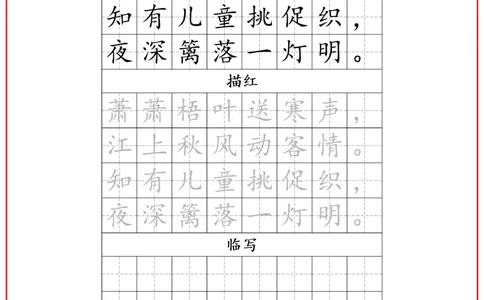 知有儿童挑促织，
夜深篱落一灯明。
描红
萧萧梧叶送寒声，
江上秋风动客情。
知有儿童挑促织，
夜深篱落一灯明。
临写